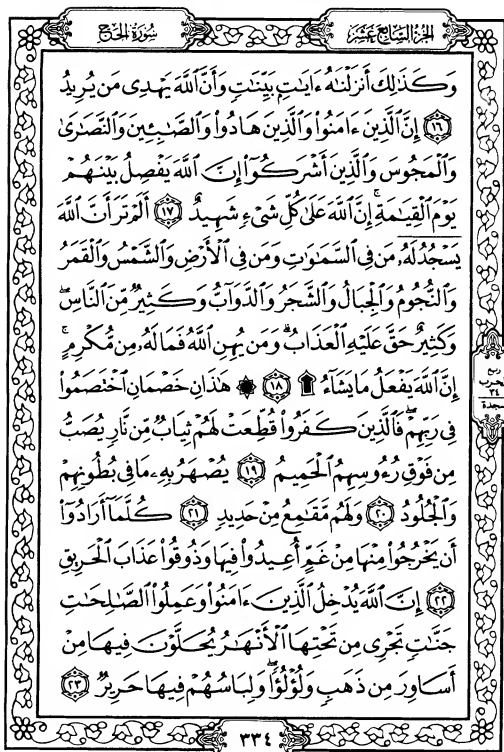 الجزء السابع عشر
سُورَةُ الحَجِّ
وَكَذَٰلِكَ أَنزَلْنَٰهُ ءَايَٰتٍۭ بَيِّنَٰتٍ وَأَنَّ ٱللَّهَ يَهْدِى مَن يُرِيدُ
١٦ إِنَّ ٱلَّذِينَ ءَامَنُوا۟ وَٱلَّذِينَ هَادُوا۟ وَٱلصَّٰبِـِٔينَ وَٱلنَّصَٰرَىٰ
وَٱلْمَجُوسَ وَٱلَّذِينَ أَشْرَكُوٓا۟ إِنَّ ٱللَّهَ يَفْصِلُ بَيْنَهُمْ
يَوْمَ ٱلْقِيَٰمَةِ ۚ إِنَّ ٱللَّهَ عَلَىٰ كُلِّ شَىْءٍ شَهِيدٌ ١٧ أَلَمْ تَرَ أَنَّ ٱللَّهَ
يَسْجُدُ لَهُۥ مَن فِى ٱلسَّمَٰوَٰتِ وَمَن فِى ٱلْأَرْضِ وَٱلشَّمْسُ وَٱلْقَمَرُ
وَٱلنُّجُومُ وَٱلْجِبَالُ وَٱلشَّجَرُ وَٱلدَّوَآبُّ وَكَثِيرٌ مِّنَ ٱلنَّاسِ ۖ
وَكَثِيرٌ حَقَّ عَلَيْهِ ٱلْعَذَابُ ۗ وَمَن يُهِنِ ٱللَّهُ فَمَا لَهُۥ مِن مُّكْرِمٍ ۚ
إِنَّ ٱللَّهَ يَفْعَلُ مَا يَشَآءُ ۩ ١٨ ۞ هَٰذَانِ خَصْمَانِ ٱخْتَصَمُوا۟
فِى رَبِّهِمْ ۖ فَٱلَّذِينَ كَفَرُوا۟ قُطِّعَتْ لَهُمْ ثِيَابٌ مِّن نَّارٍ يُصَبُّ
مِن فَوْقِ رُءُوسِهِمُ ٱلْحَمِيمُ ١٩ يُصْهَرُ بِهِۦ مَا فِى بُطُونِهِمْ
وَٱلْجُلُودُ ٢٠ وَلَهُم مَّقَٰمِعُ مِنْ حَدِيدٍ ٢١ كُلَّمَآ أَرَادُوٓا۟
أَن يَخْرُجُوا۟ مِنْهَا مِنْ غَمٍّ أُعِيدُوا۟ فِيهَا وَذُوقُوا۟ عَذَابَ ٱلْحَرِيقِ
٢٢ إِنَّ ٱللَّهَ يُدْخِلُ ٱلَّذِينَ ءَامَنُوا۟ وَعَمِلُوا۟ ٱلصَّٰلِحَٰتِ
جَنَّٰتٍ تَجْرِى مِن تَحْتِهَا ٱلْأَنْهَٰرُ يُحَلَّوْنَ فِيهَا مِنْ
أَسَاوِرَ مِن ذَهَبٍ وَلُؤْلُؤًا ۖ وَلِبَاسُهُمْ فِيهَا حَرِيرٌ ٢٣
ربع
الحزب
٣٤
سجدة
٣٣٤